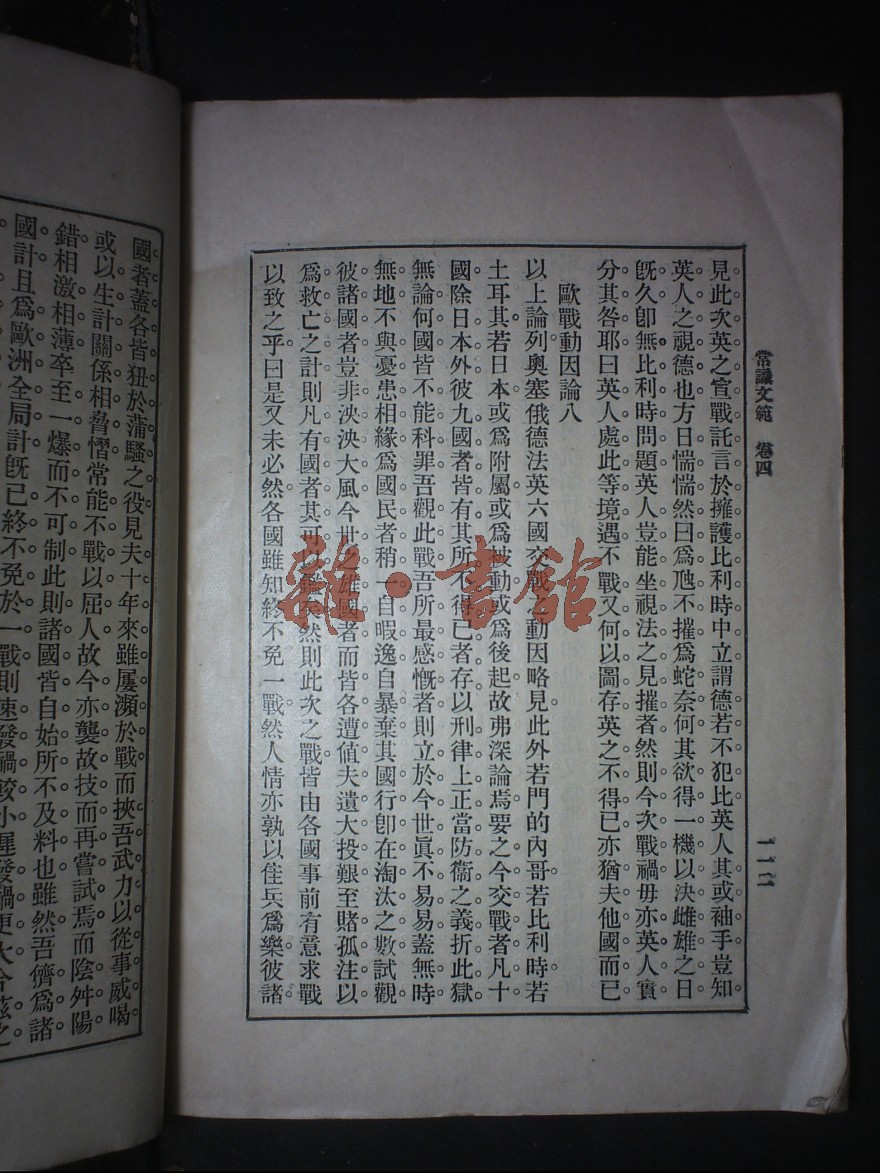 常識文範　卷四
一一二
見此次英之宣戰託言於擁護比利時中立謂德若不犯比英人其或袖手豈知
英人之視德也方日惴惴然曰爲虺不摧爲蛇奈何其欲得一機以決雌雄之日
旣久卽無比利時問題英人豈能坐視法之見摧者然則今次戰禍毋亦英人實
分其咎耶曰英人處此等境遇不戰又何以圖存英之不得已亦猶夫他國而已
歐戰動因論八
以上論列奧塞俄德法英六國交戰之動因略見此外若門的內哥若比利時若
土耳其若日本或爲附屬或爲被動或爲後起故弗深論焉要之今交戰者凡十
國除日本外彼九國者皆有其所不得已者存以刑律上正當防衞之義折此獄
無論何國皆不能科罪吾觀此戰吾所最感慨者則立於今世眞不易易蓋無時
無地不與憂患相緣爲國民者稍一自暇逸自暴棄其國行卽在淘汰之數試觀
彼諸國者豈非泱泱大風今世之雄國者而皆各遭值夫遺大投艱至賭孤注以
爲救亡之計則凡有國者其可以鑑矣然則此次之戰皆由各國事前有意求戰
以致之乎曰是又未必然各國雖知終不免一戰然人情亦孰以佳兵爲樂彼諸
國者蓋各皆狃於蒲騷之役見夫十年來雖屢瀕於戰而挾吾武力以從事威喝
或以生計關係相脅慴常能不戰以屈人故今亦襲故技而再嘗試焉而陰舛陽
錯相激相薄卒至一爆而不可制此則諸國皆自始所不及料也雖然吾儕爲諸
國計且爲歐洲全局計旣已終不免於一戰則速發禍較小遲發禍更大今茲之
雜·書館